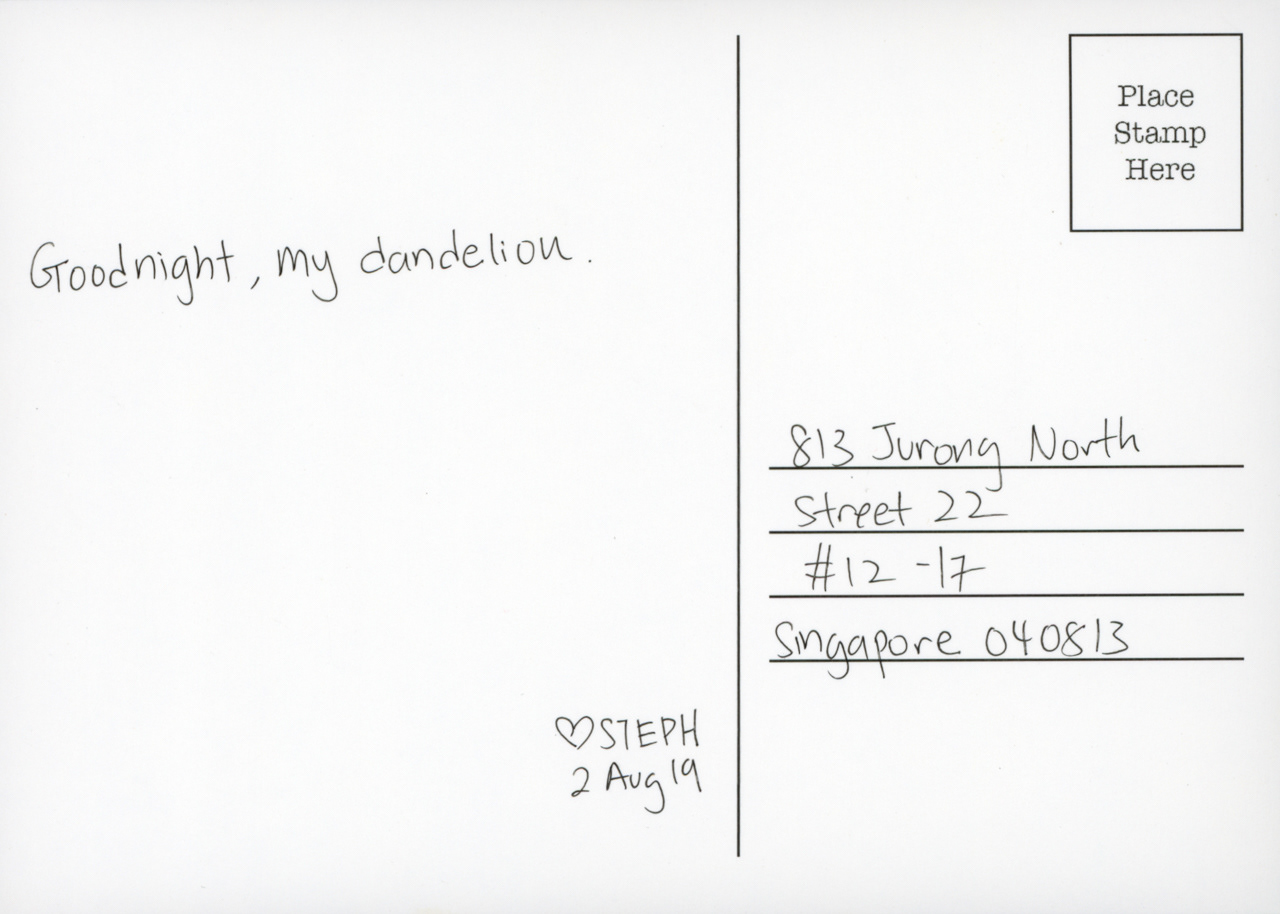 Goodnight, my dandelion.
♡STEPH
2 Aug 19
Place
Stamp
Here
813 Jurong North
Street 22
#12-17
Singapore 040813